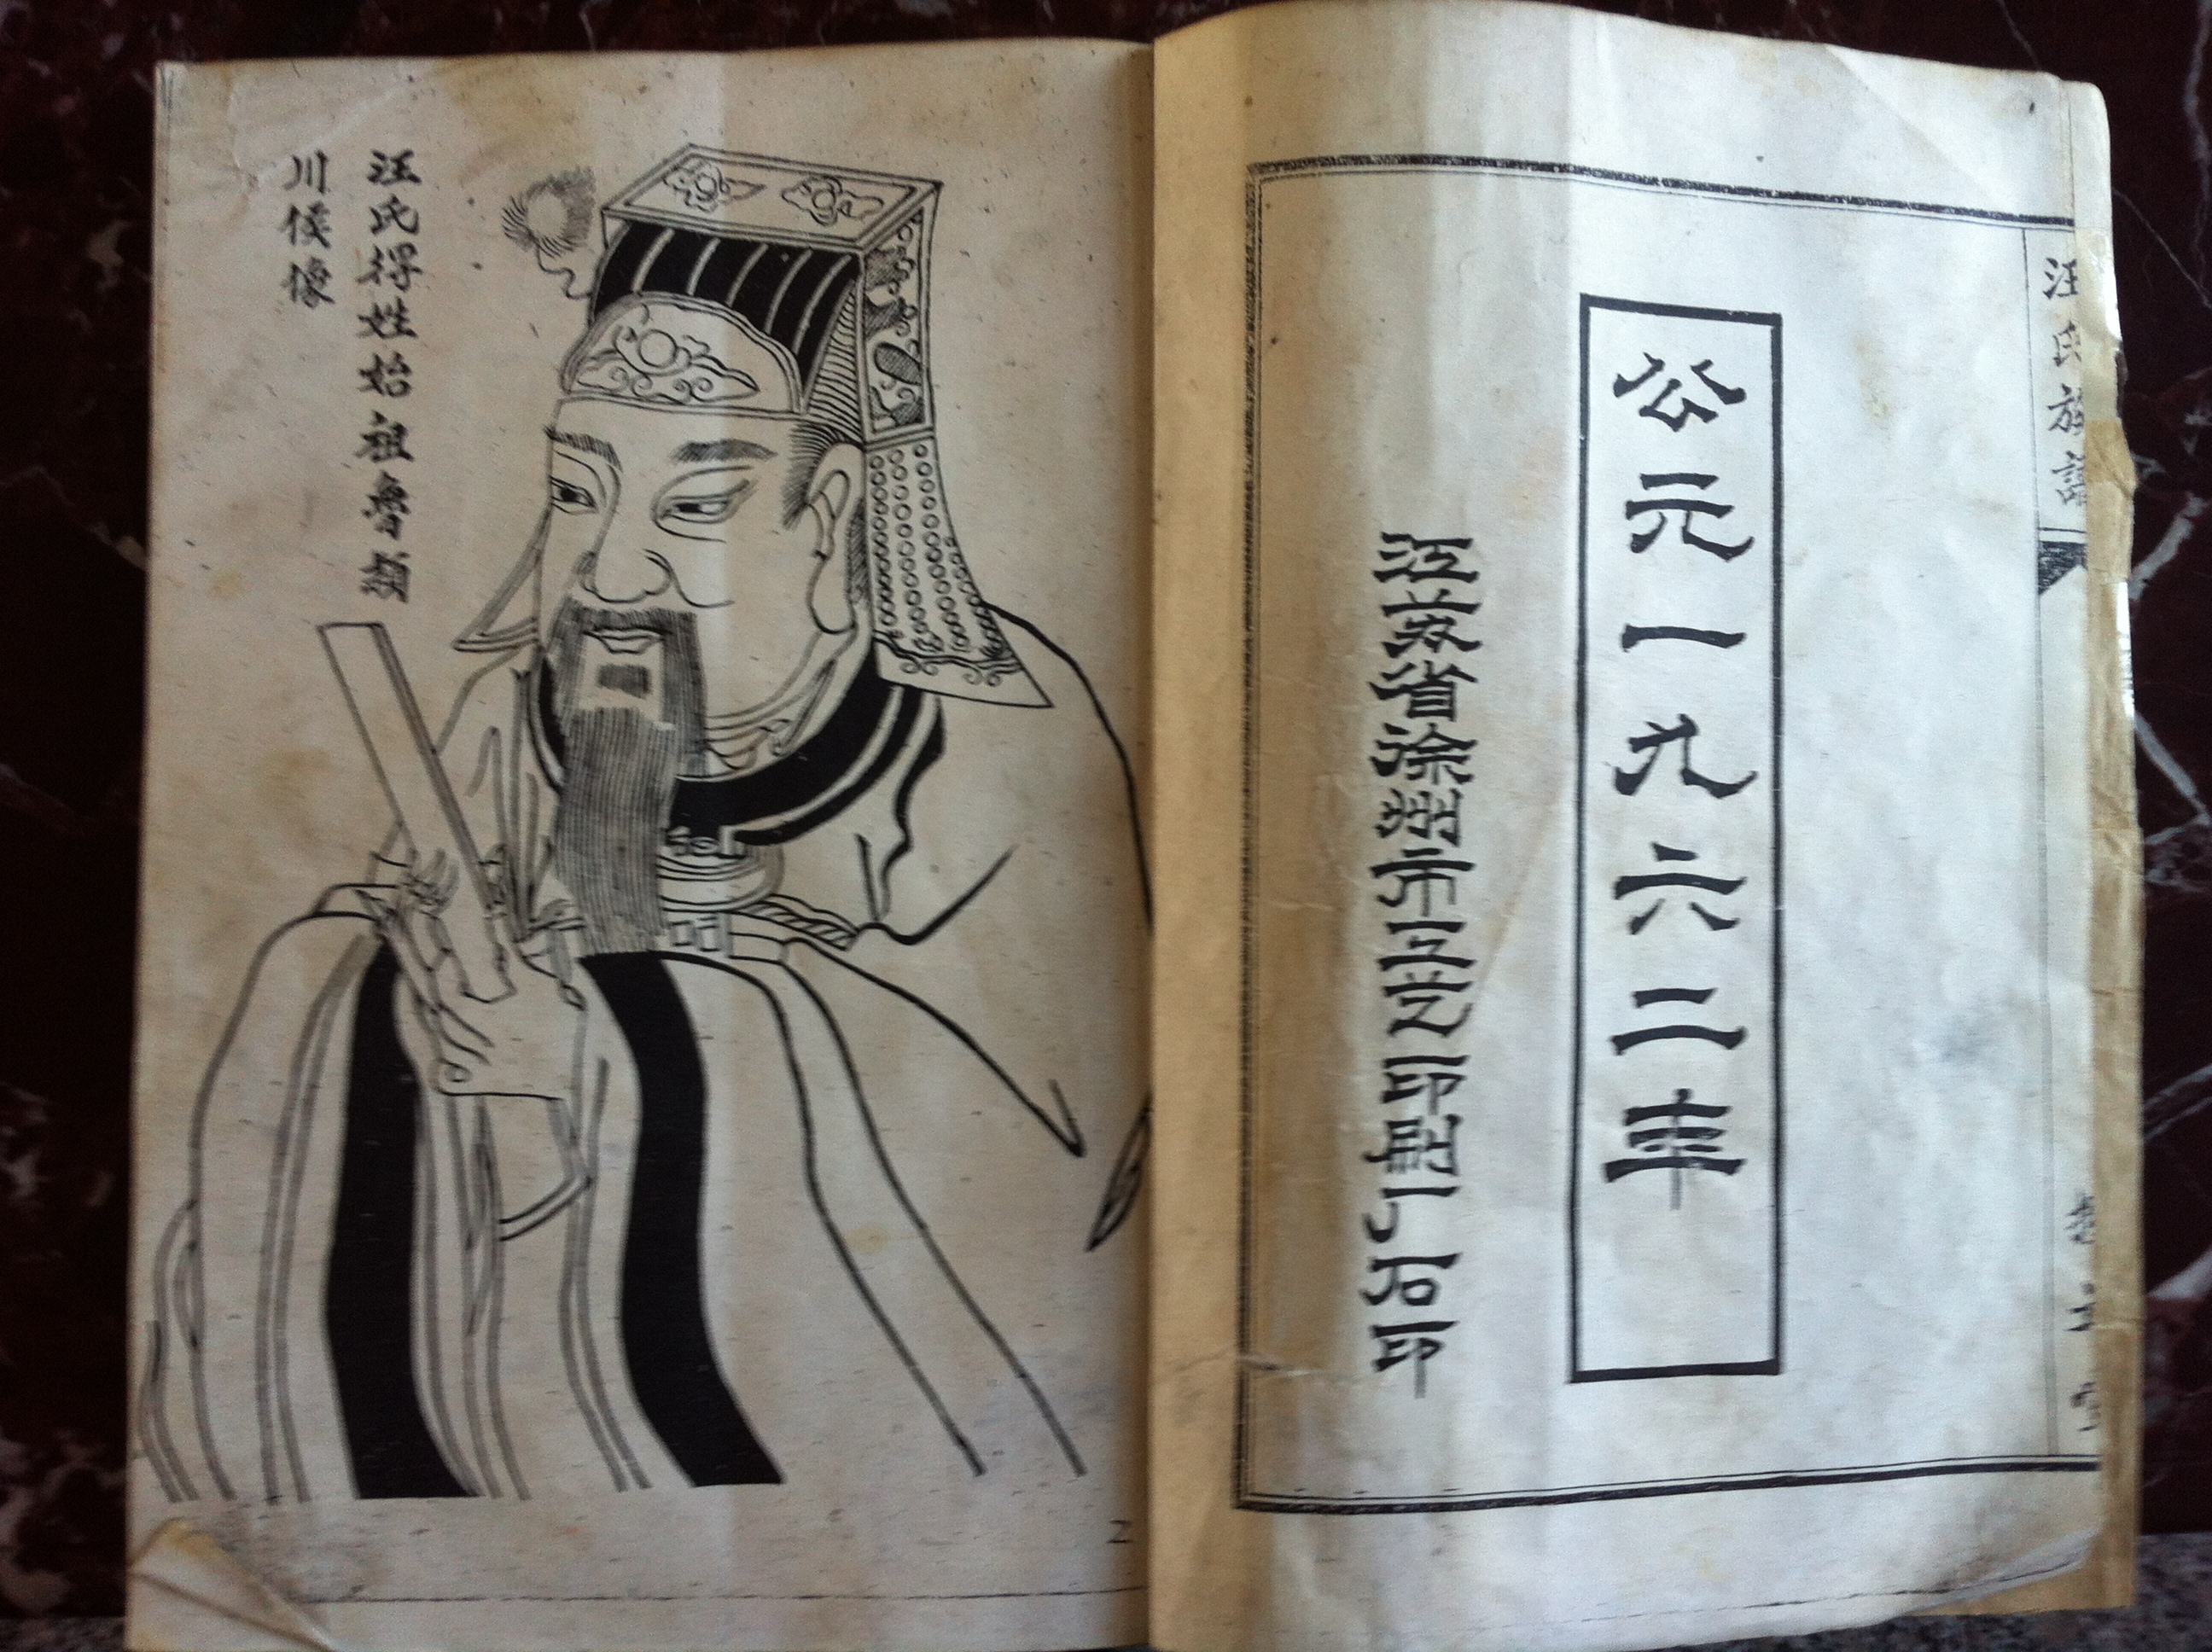 汪氏族譜
公元一九六二年
江苏省徐州市工艺印刷厂石印
汪氏得姓始祖魯頴
川侯像
2